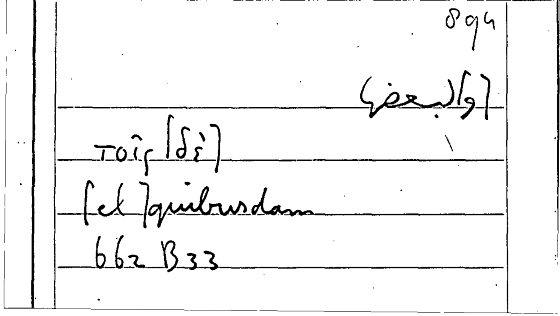 894
[و]لبعض
τοῖς [δὲ]
[et] quibusdam
662 B33